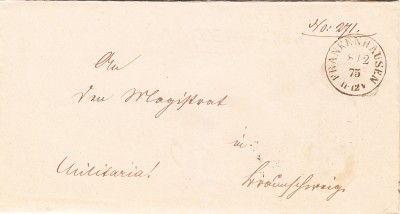 No: 271.
FRANKENHAUSEN
8 12
75
11-12 V
An
den Magistrat
in
Militaria!
Braunschweig